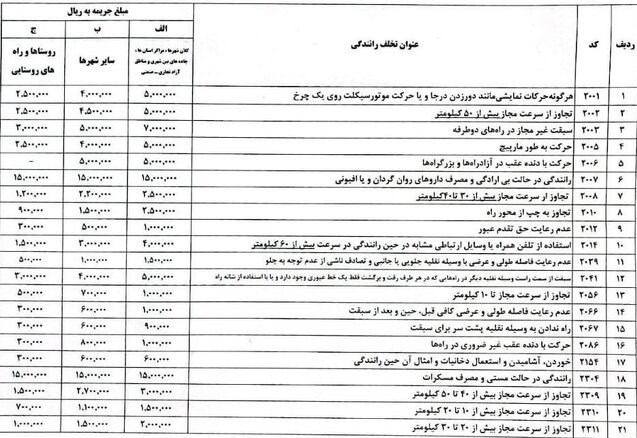 ردیف | کد | عنوان تخلف رانندگی | مبلغ جریمه به ریال
الف | ب | ج
کلان شهرها ، مراکز استان ها ، جاده های بین شهری و مناطق آزاد تجاری - صنعتی | سایر شهرها | روستاها و راه های روستایی
۱ | ۲۰۰۱ | هرگونه حرکات نمایشی مانند دورزدن درجا و یا حرکت موتورسیکلت روی یک چرخ | ۵,۰۰۰,۰۰۰ | ۴,۰۰۰,۰۰۰ | ۲,۵۰۰,۰۰۰
۲ | ۲۰۰۲ | تجاوز از سرعت مجاز بیش از ۵۰ کیلومتر | ۵,۰۰۰,۰۰۰ | ۴,۵۰۰,۰۰۰ | ۲,۵۰۰,۰۰۰
۳ | ۲۰۰۳ | سبقت غیر مجاز در راه‌های دوطرفه | ۷,۰۰۰,۰۰۰ | ۵,۰۰۰,۰۰۰ | ۳,۰۰۰,۰۰۰
۴ | ۲۰۰۵ | حرکت به طور مارپیچ | ۵,۰۰۰,۰۰۰ | ۴,۰۰۰,۰۰۰ | ۲,۵۰۰,۰۰۰
۵ | ۲۰۰۶ | حرکت با دنده عقب در آزادراه‌ها و بزرگراه‌ها | ۵,۰۰۰,۰۰۰ | ۵,۰۰۰,۰۰۰ | -
۶ | ۲۰۰۷ | رانندگی در حالت بی ارادگی و مصرف داروهای روان گردان و یا افیونی | ۱۵,۰۰۰,۰۰۰ | ۱۵,۰۰۰,۰۰۰ | ۱۵,۰۰۰,۰۰۰
۷ | ۲۰۰۸ | تجاوز از سرعت مجاز بیش از ۳۰ تا ۴۰ کیلومتر | ۲,۵۰۰,۰۰۰ | ۲,۲۰۰,۰۰۰ | ۱,۲۰۰,۰۰۰
۸ | ۲۰۱۰ | تجاوز به چپ از محور راه | ۲,۵۰۰,۰۰۰ | ۱,۵۰۰,۰۰۰ | ۹۰۰,۰۰۰
۹ | ۲۰۱۲ | عدم رعایت حق تقدم عبور | ۱,۰۰۰,۰۰۰ | ۵۰۰,۰۰۰ | ۳۰۰,۰۰۰
۱۰ | ۲۰۱۴ | استفاده از تلفن همراه یا وسایل ارتباطی مشابه در حین رانندگی در سرعت بیش از ۶۰ کیلومتر | ۴,۰۰۰,۰۰۰ | ۳,۰۰۰,۰۰۰ | ۱,۵۰۰,۰۰۰
۱۱ | ۲۰۳۹ | عدم رعایت فاصله طولی و عرضی با وسیله نقلیه جلویی یا جانبی و تصادف ناشی از عدم توجه به جلو | ۱,۵۰۰,۰۰۰ | ۱,۰۰۰,۰۰۰ | ۵۰۰,۰۰۰
۱۲ | ۲۰۴۱ | سبقت از سمت راست وسیله نقلیه دیگر در راه‌هایی که در هر طرف رفت و برگشت فقط یک خط عبوری وجود دارد و یا با استفاده از شانه راه | ۵,۰۰۰,۰۰۰ | ۴,۰۰۰,۰۰۰ | ۳,۰۰۰,۰۰۰
۱۳ | ۲۰۵۶ | تجاوز از سرعت مجاز تا ۱۰ کیلومتر | ۱,۰۰۰,۰۰۰ | ۷۰۰,۰۰۰ | ۵۰۰,۰۰۰
۱۴ | ۲۰۶۶ | عدم رعایت فاصله طولی و عرضی کافی قبل، حین و بعد از سبقت | ۱,۰۰۰,۰۰۰ | ۶۰۰,۰۰۰ | ۳۰۰,۰۰۰
۱۵ | ۲۰۶۷ | راه ندادن به وسیله نقلیه پشت سر برای سبقت | ۹۰۰,۰۰۰ | ۶۰۰,۰۰۰ | ۳۰۰,۰۰۰
۱۶ | ۲۰۸۶ | حرکت با دنده عقب غیر ضروری در راه‌ها | ۱,۰۰۰,۰۰۰ | ۸۰۰,۰۰۰ | ۳۰۰,۰۰۰
۱۷ | ۲۱۵۴ | خوردن، آشامیدن و استعمال دخانیات و امثال آن حین رانندگی | ۶۰۰,۰۰۰ | ۶۰۰,۰۰۰ | ۳۰۰,۰۰۰
۱۸ | ۲۳۰۴ | رانندگی در حالت مستی و مصرف مسکرات | ۱۵,۰۰۰,۰۰۰ | ۱۵,۰۰۰,۰۰۰ | ۱۵,۰۰۰,۰۰۰
۱۹ | ۲۳۰۹ | تجاوز از سرعت مجاز بیش از ۴۰ تا ۵۰ کیلومتر | ۳,۰۰۰,۰۰۰ | ۲,۷۰۰,۰۰۰ | ۱,۵۰۰,۰۰۰
۲۰ | ۲۳۱۰ | تجاوز از سرعت مجاز بیش از ۱۰ تا ۲۰ کیلومتر | ۱,۵۰۰,۰۰۰ | ۱,۱۰۰,۰۰۰ | ۷۰۰,۰۰۰
۲۱ | ۲۳۱۱ | تجاوز از سرعت مجاز بیش از ۲۰ تا ۳۰ کیلومتر | ۲,۰۰۰,۰۰۰ | ۱,۵۰۰,۰۰۰ | ۱,۰۰۰,۰۰۰